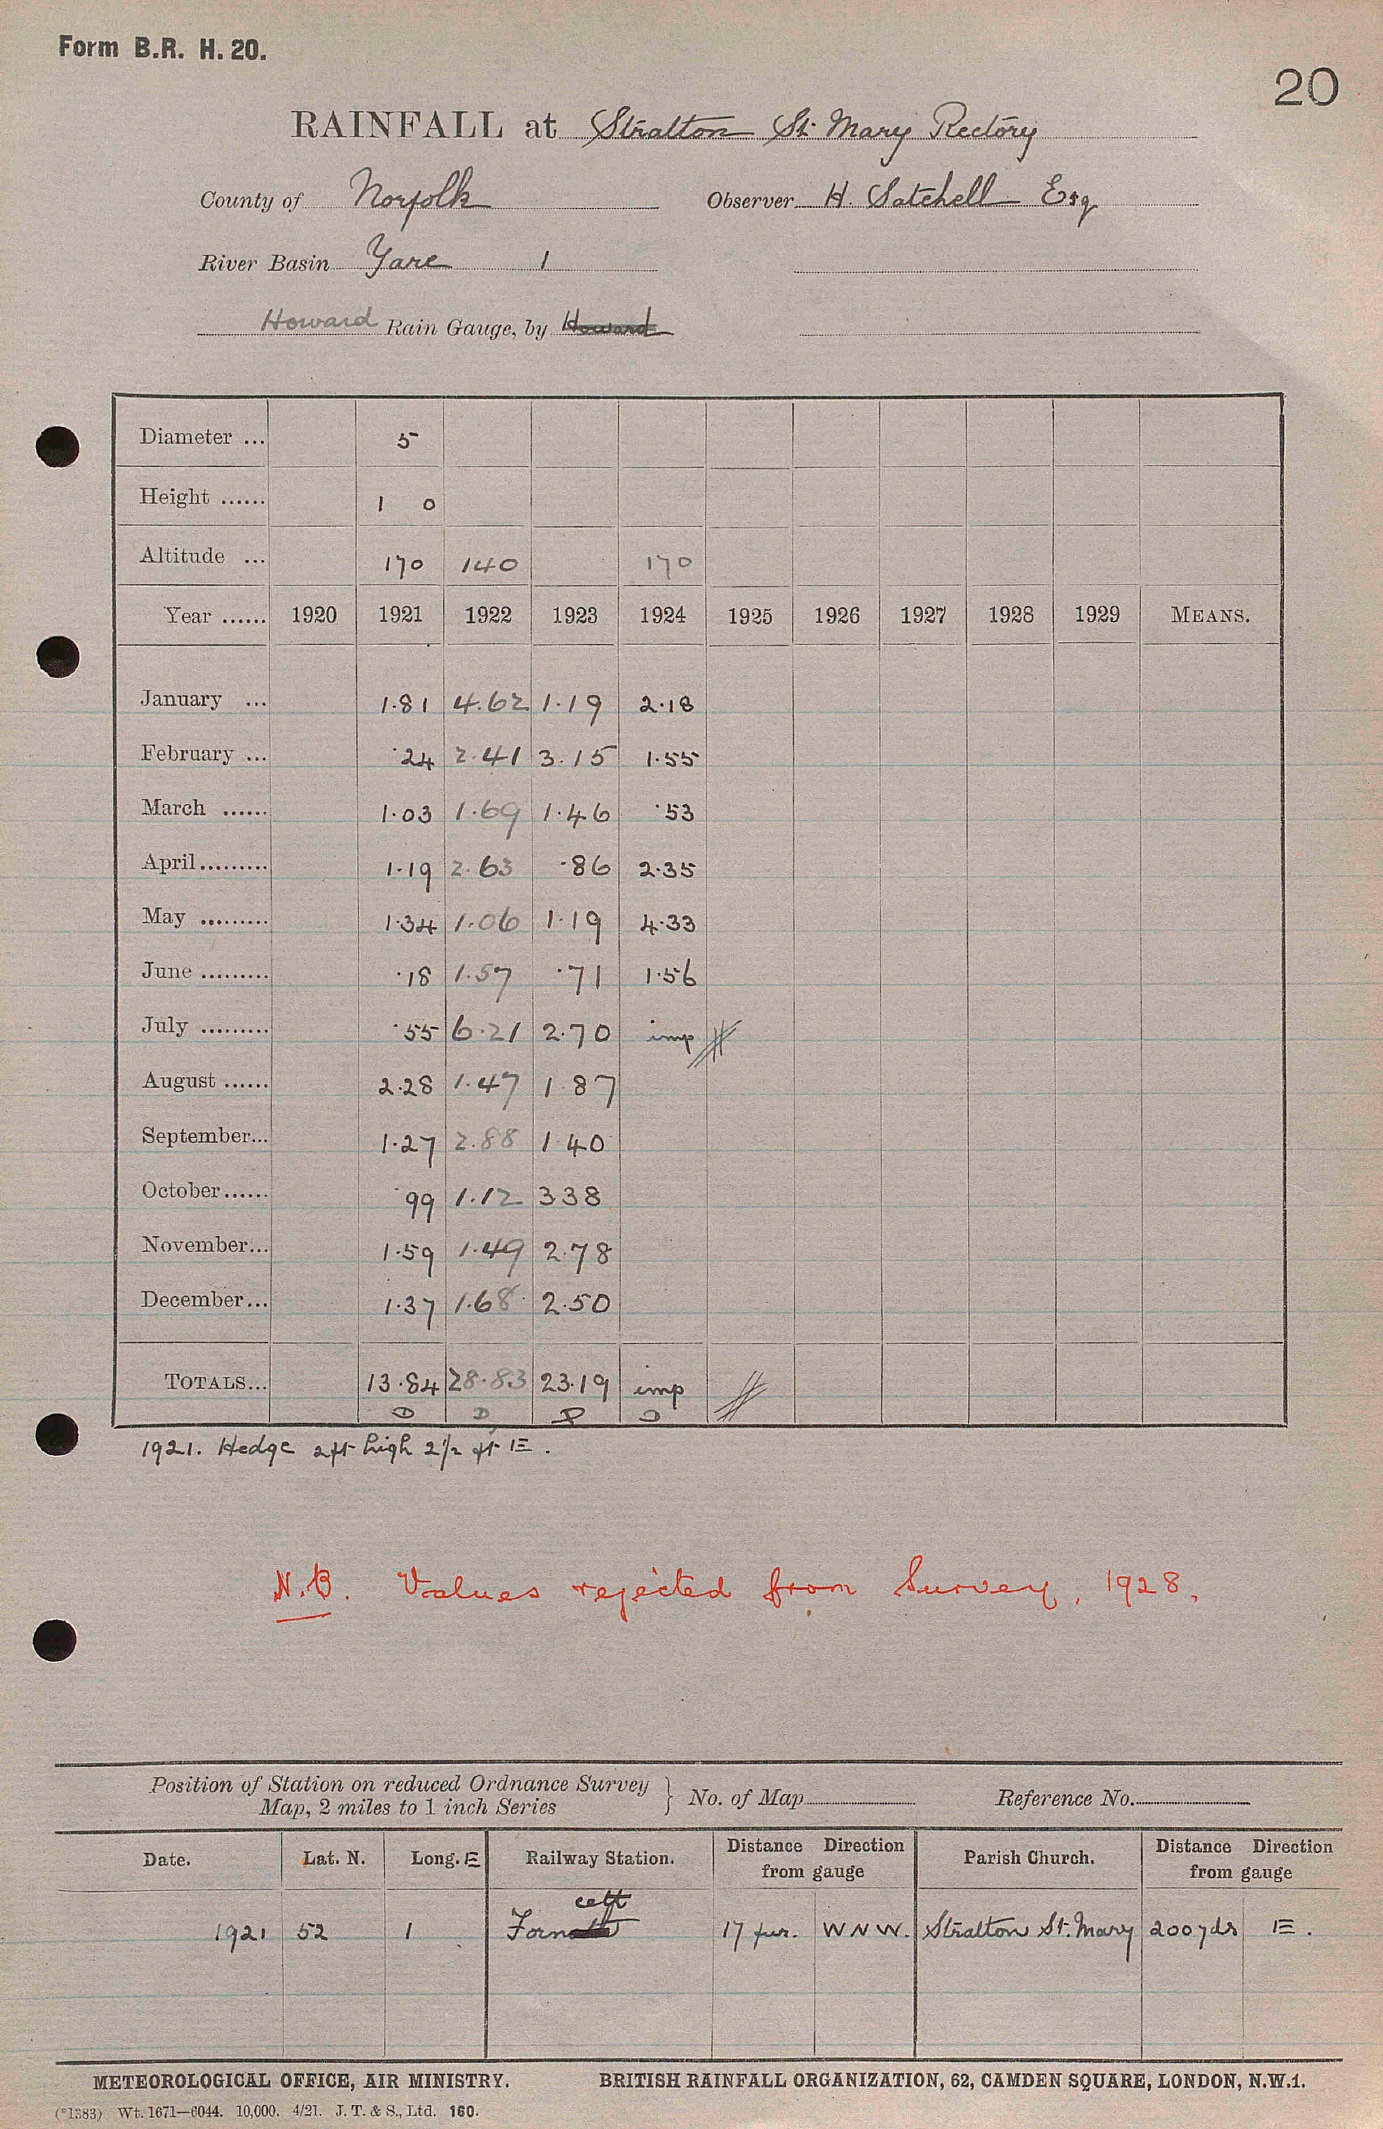 Form B.R. H. 20.
20
RAINFALL at Stratton St. Mary Rectory
County of Norfolk Observer H. Satchell Esq
River Basin Yare 1
Howard Rain Gauge, by Howard
Diameter ... 5
Height ...... 1 0
Altitude ... 170 140 170
Year ...... 1920 1921 1922 1923 1924 1925 1926 1927 1928 1929 MEANS.
January ... 1.81 4.62 1.19 2.18
February ... .24 2.41 3.15 1.55
March ...... 1.03 1.69 1.46 .53
April......... 1.19 2.63 .86 2.35
May ......... 1.34 1.06 1.19 4.33
June ......... .18 1.57 .71 1.56
July ......... .55 6.21 2.70 imp
August ...... 2.28 1.47 1.87
September... 1.27 2.88 1.40
October...... .99 1.12 338
November... 1.59 1.49 2.78
December... 1.37 1.68 2.50
TOTALS... 13.84 28.83 23.19 imp
D D D
1921. Hedge 2ft high 2½ ft E.
N.B. Values rejected from Survey, 1928.
Position of Station on reduced Ordnance Survey
Map, 2 miles to 1 inch Series } No. of Map Reference No.
Date. Lat. N. Long. E Railway Station. Distance Direction from gauge Parish Church. Distance Direction from gauge
cett
1921 52 1 Forn 17 fur. WNW. Stratton St. Mary 200 yds E.
METEOROLOGICAL OFFICE, AIR MINISTRY. BRITISH RAINFALL ORGANIZATION, 62, CAMDEN SQUARE, LONDON, N.W.1.
(*1383) Wt. 1671—6044. 10,000. 4/21. J. T. & S., Ltd. 160.